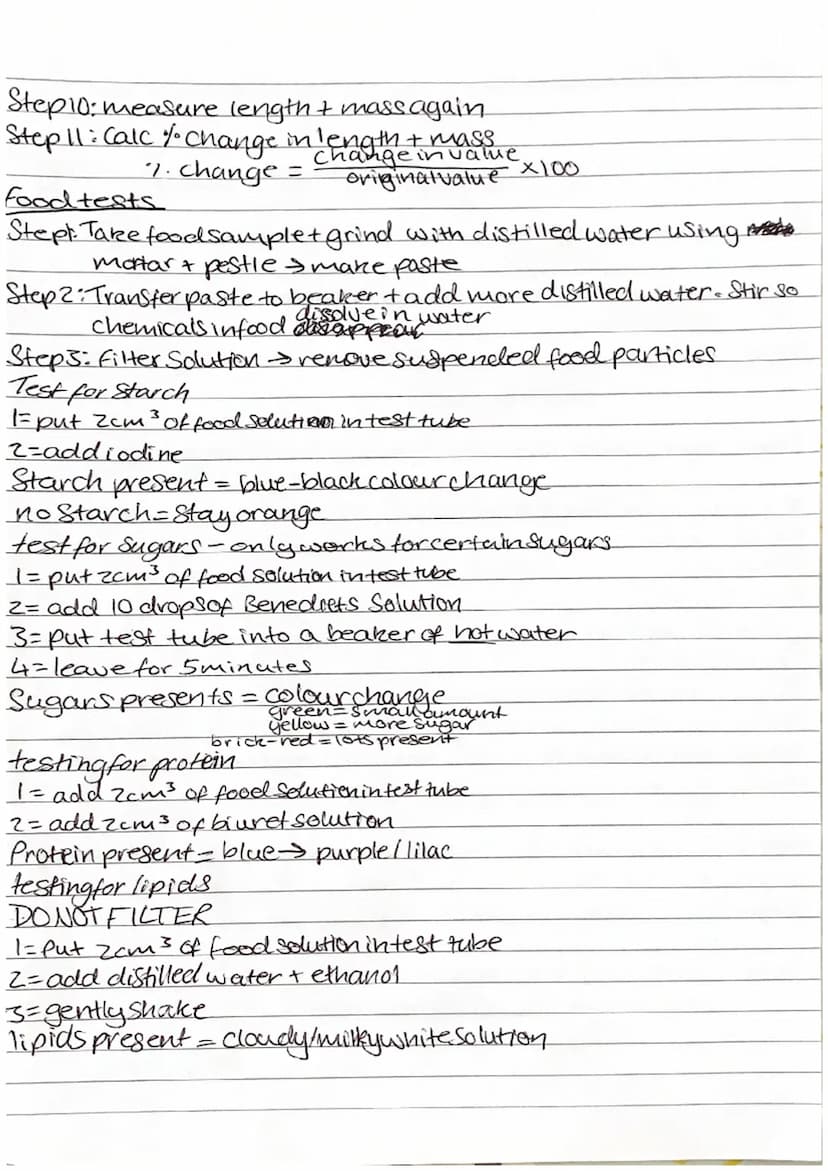 Step10: measure length + mass again
Step 11: Calc % change in length + mass
% change = change in value / original value ×100
Food tests
Step1: Take food sample + grind with distilled water using
mortar + pestle → make paste
Step 2: Transfer paste to beaker + add more distilled water. Stir so
chemicals in food disolve in water
Step3: Filter Solution → remove suspended food particles
Test for Starch
1= put 2cm³ of food solution in test tube
2= add iodine
Starch present = blue-black colour change
no Starch = Stay orange
test for Sugars - only works for certain sugars
1= put 2cm³ of food solution in test tube
2= add 10 drops of Benedicts Solution
3= put test tube into a beaker of hot water
4= leave for 5 minutes
Sugars presents = colour change
green = small amount
yellow = more sugar
brick-red = lots present
testing for protein
1= add 2cm³ of food solution in test tube
2= add 2cm³ of biuret solution
Protein present = blue → purple/lilac
testing for lipids
DO NOT FILTER
1= Put 2cm³ of food solution in test tube
2= add distilled water + ethanol
3= gently shake
lipids present = cloudy/milky white solution